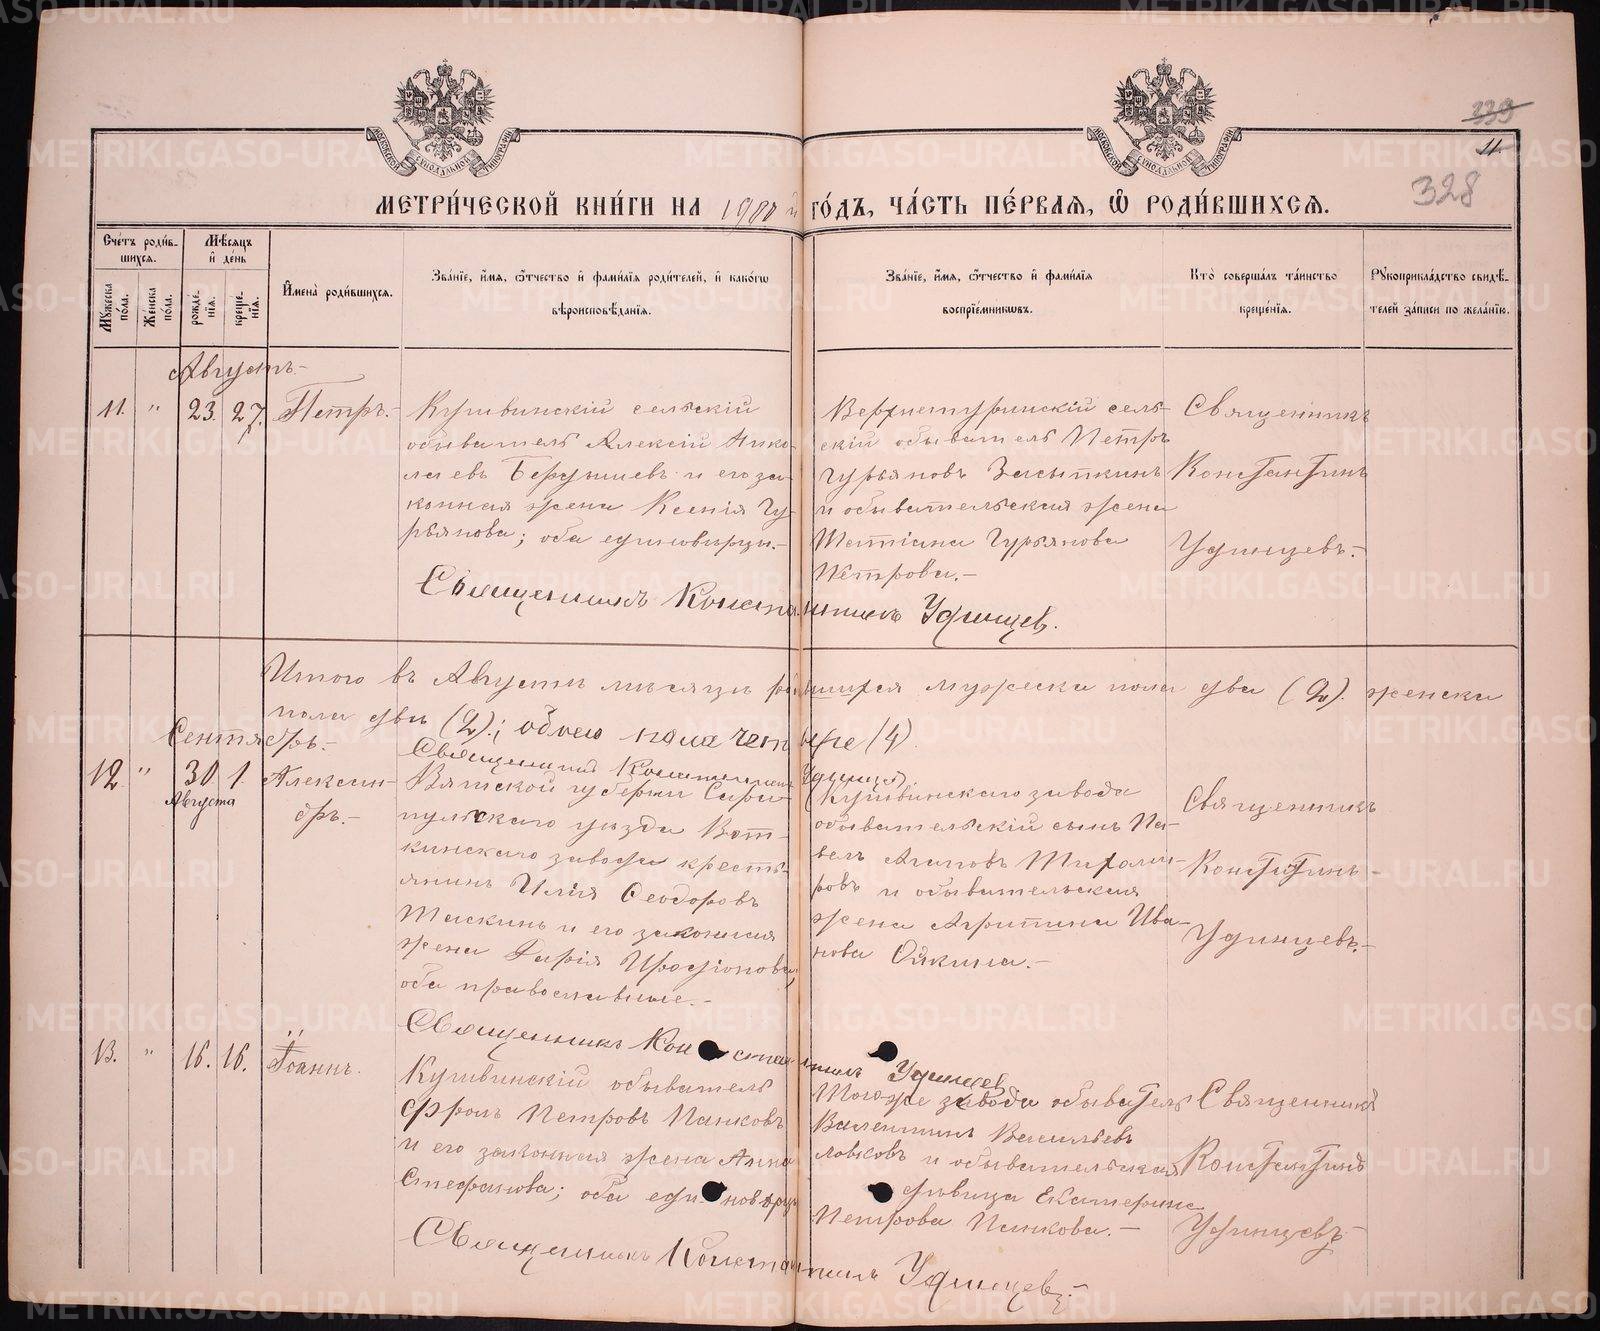 339
11
328
МЕТРИЧЕСКОЙ КНИГИ НА 1900 й ГОДЪ, ЧАСТЬ ПЕРВАЯ, Ѡ РОДИВШИХСЯ.
Счетъ родившихся.
Мужеска пола.
Женска пола.
Мѣсяцъ и день
рожденія.
крещенія.
Имена родившихся.
Званіе, имя, ѡтчество и фамилія родителей, и какогѡ вѣроисповѣданія.
Званіе, имя, ѡтчество и фамилія воспріемникѡвъ.
Кто совершалъ таинство крещенія.
Рукоприкладство свидѣтелей записи по желанію.
Августъ.-
11. " 23. 27. Петръ.-
Кушвинскій сельскій
обыватель Алексій Нико-
лаевъ Бердышевъ и его за-
конная жена Ксенія Гу-
рьянова; оба единовѣрцы.-
Верхнетуринскій сель-
скій обыватель Петръ
Гурьяновъ Засыпкинъ
и обывательская жена
Татіана Гурьянова
Петрова.-
Священникъ
Константинъ
Удинцевъ.-
Священникъ Константинъ Удинцев.
Итого въ Августѣ мѣсяцѣ родившихся мужеска пола два (2). женска
пола двѣ (2).; обоего пола четыре (4)
Священникъ Константинъ Удинцев.
Сентябрь.-
12. " 30 Августа 1. Александръ.-
Вятской губерніи Сара-
пульскаго уѣзда Вот-
кинскаго завода кресть-
янинъ Илія Ѳеодоровъ
Таскинъ и его законная
жена Дарія Иродіонова,
оба православные.-
Кушвинскаго завода
обывательскій сынъ Па-
велъ Агаповъ
и обывательская
жена Агрипина Ива-
нова
Священникъ
Константинъ
Удинцевъ.-
Священникъ Константинъ Удинцев
13. " 16. 16. Іоаннъ.
Кушвинскій обыватель
Фролъ Петровъ Панковъ
и его законная жена Анна
Стефанова; оба единовѣрцы
Тогоже завода обыватель
Валентинъ Васильевъ
и обывательская
дѣвица Екатерина
Петрова Панкова.-
Священникъ
Константинъ
Удинцевъ-
Священникъ Константинъ Удинцевъ.-
METRIKI.GASO-URAL.RU